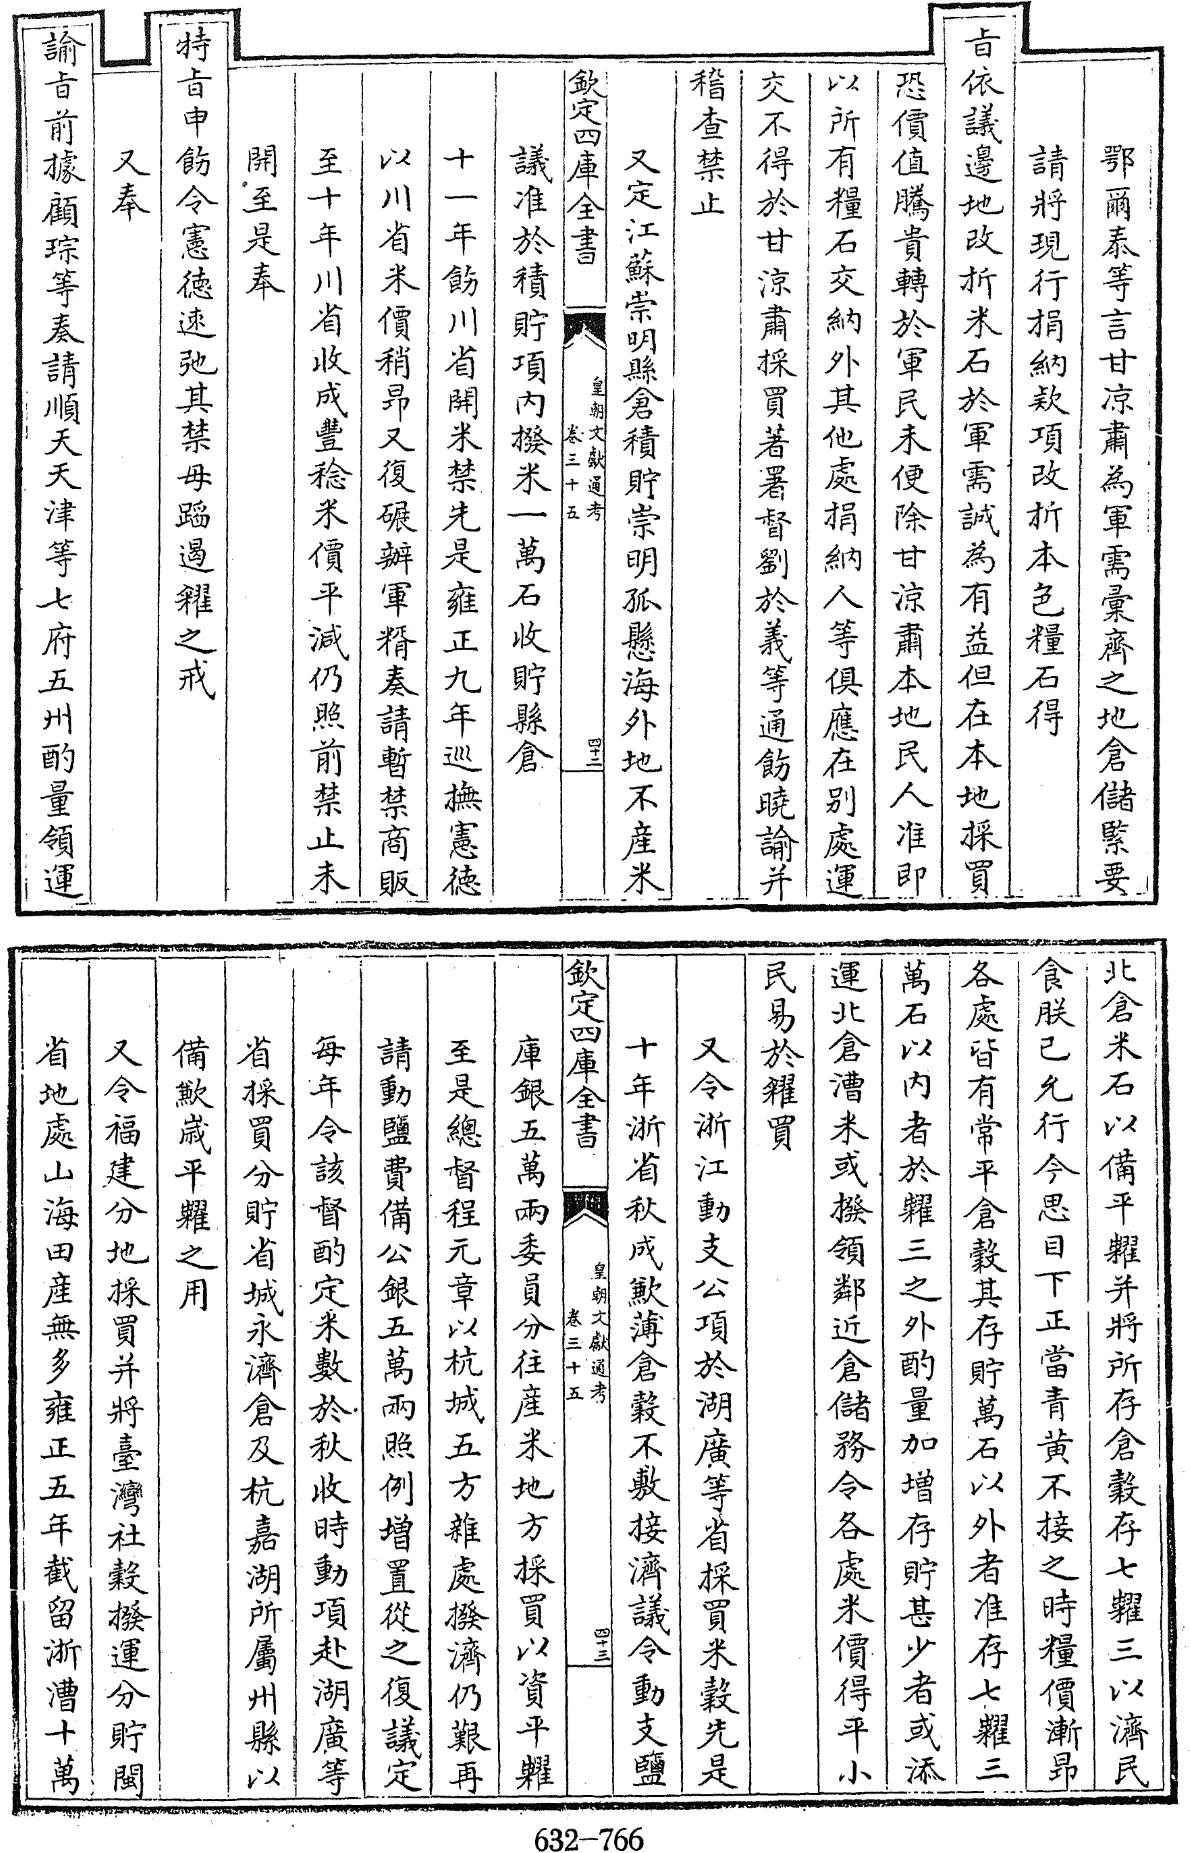 鄂爾泰等言甘凉肅為軍需彙齊之地倉儲緊要
請將現行捐納欵項改折本色糧石得
旨依議邊地改折米石於軍需誠為有益但在本地採買
恐價值騰貴轉於軍民未便除甘凉肅本地民人准即
以所有糧石交納外其他處捐納人等俱應在别處運
交不得於甘凉肅採買著署督劉於義等通飭曉諭并
稽查禁止
又定江蘇崇明縣倉積貯崇明孤懸海外地不産米
欽定四庫全書
皇朝文獻通考
卷三十五
四十二
議准於積貯項内撥米一萬石收貯縣倉
十一年飭川省開米禁先是雍正九年巡撫憲徳
以川省米價稍昻又復碾辦軍糈奏請暫禁商販
至十年川省收成豐稔米價平減仍照前禁止未
開至是奉
特旨申飭令憲徳速弛其禁毋蹈遏糴之戒
又奉
諭旨前據顧琮等奏請順天天津等七府五州酌量領運
北倉米石以備平糶并將所存倉穀存七糶三以濟民
食朕已允行今思目下正當青黄不接之時糧價漸昻
各處皆有常平倉穀其存貯萬石以外者准存七糶三
萬石以内者於糶三之外酌量加増存貯甚少者或添
運北倉漕米或撥領鄰近倉儲務令各處米價得平小
民易於糴買
又令浙江動支公項於湖廣等省採買米穀先是
十年浙省秋成歉薄倉穀不敷接濟議令動支鹽
欽定四庫全書
皇朝文獻通考
卷三十五
四十三
庫銀五萬兩委員分往産米地方採買以資平糶
至是總督程元章以杭城五方雜處撥濟仍艱再
請動鹽費備公銀五萬兩照例増置從之復議定
每年令該督酌定米數於秋收時動項赴湖廣等
省採買分貯省城永濟倉及杭嘉湖所屬州縣以
備歉歳平糶之用
又令福建分地採買并將臺灣社穀撥運分貯閩
省地處山海田産無多雍正五年截留浙漕十萬
632-766